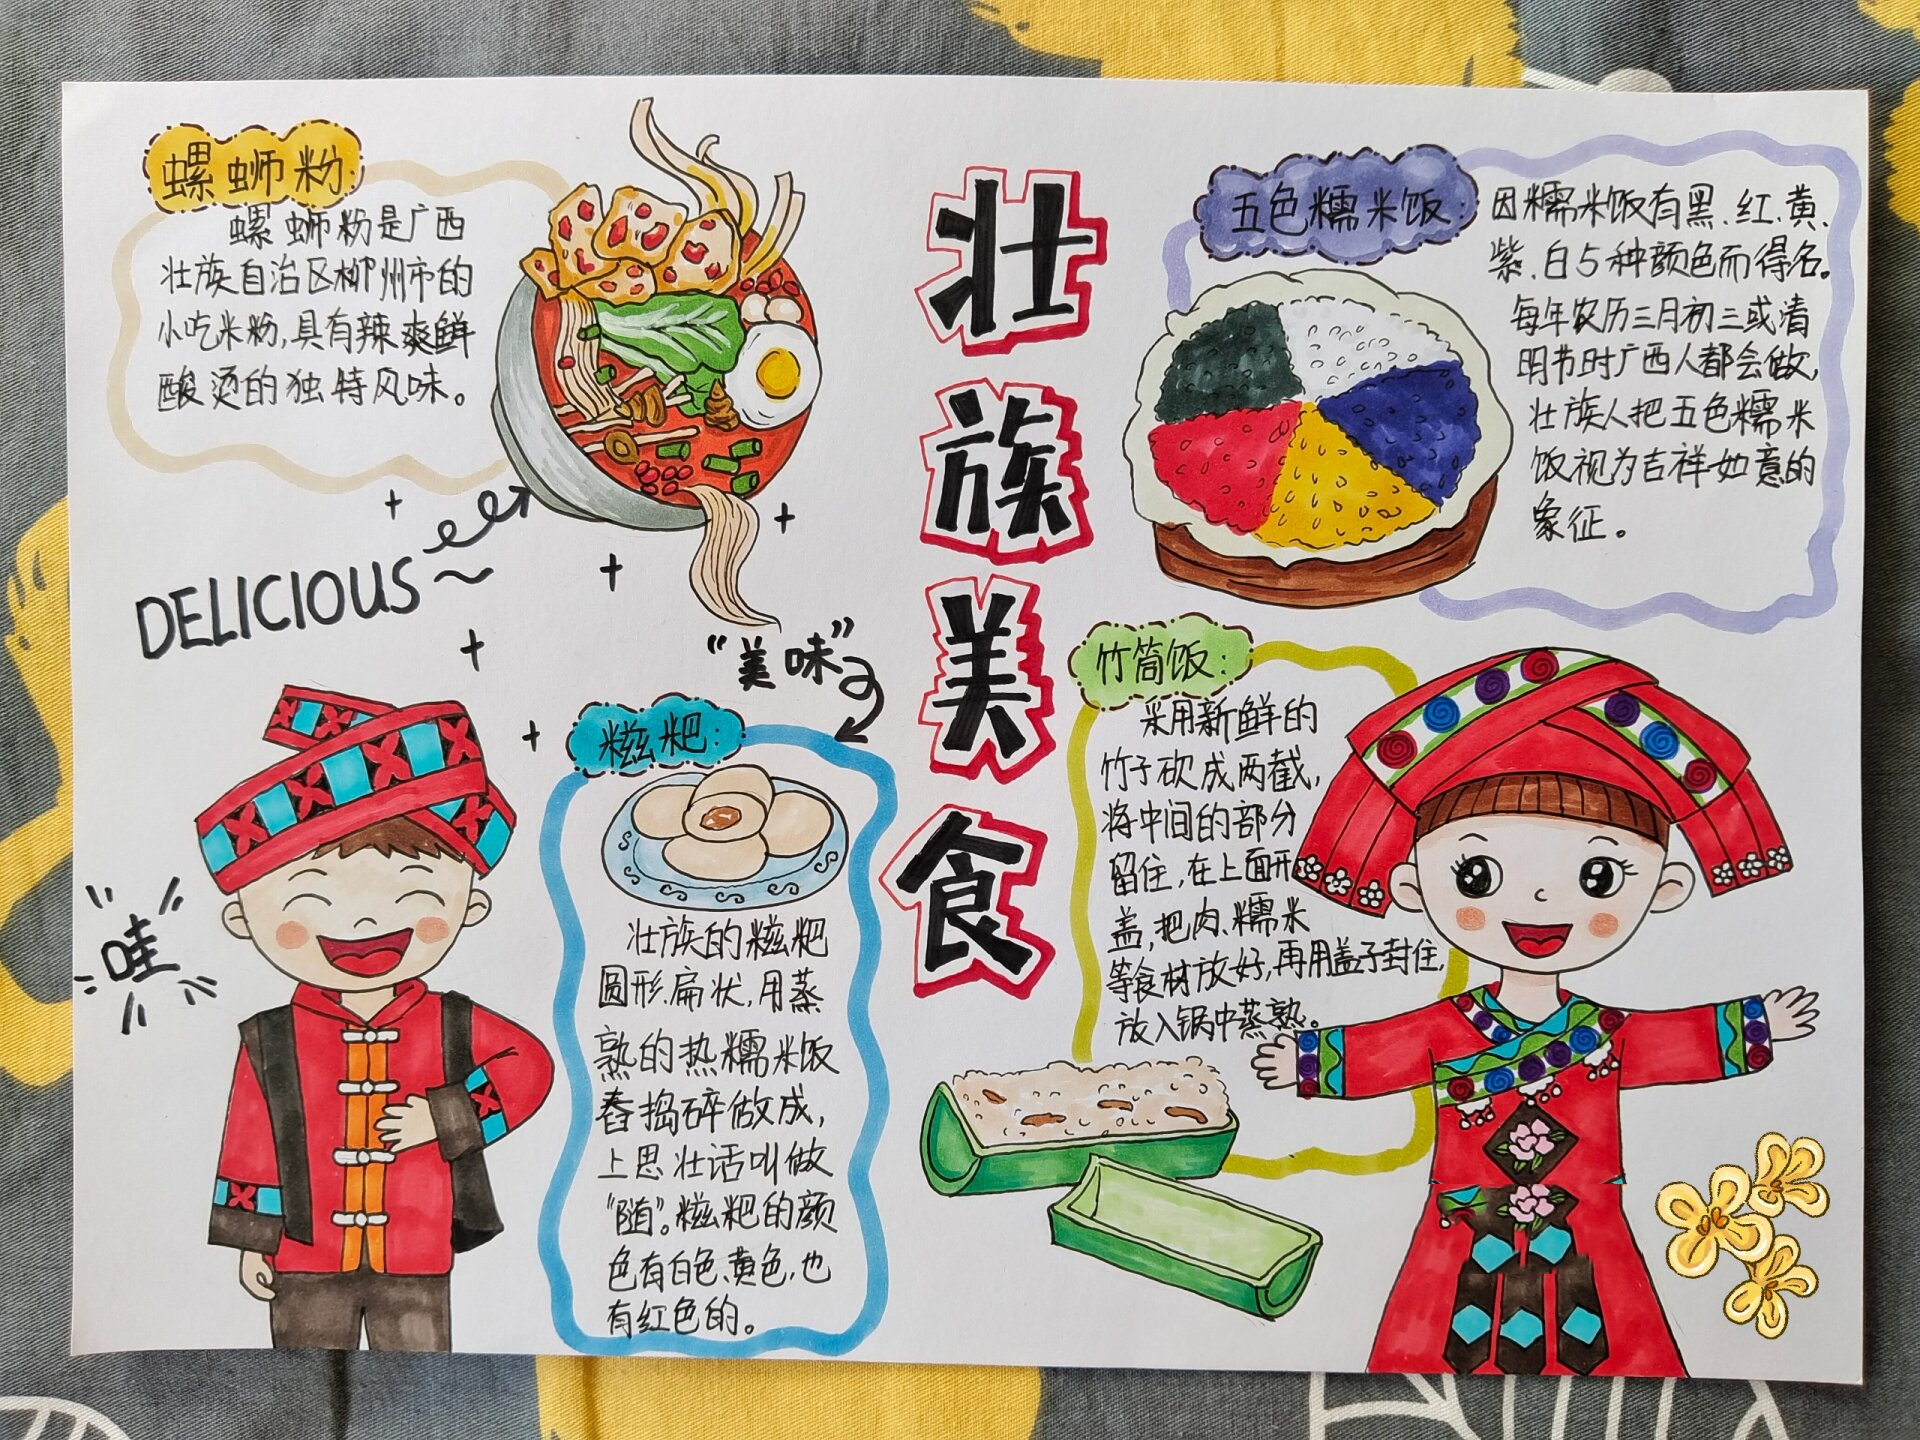 壮族美食
螺蛳粉:
螺蛳粉是广西
壮族自治区柳州市的
小吃米粉,具有辣爽鲜
酸烫的独特风味。
DELICIOUS~
五色糯米饭:
因糯米饭有黑、红、黄、
紫、白5种颜色而得名。
每年农历三月初三或清
明节时广西人都会做,
壮族人把五色糯米
饭视为吉祥如意的
象征。
"美味"
哇
糍粑:
壮族的糍粑
圆形、扁状,用蒸
熟的热糯米饭
舂捣碎做成,
上思壮话叫做
"随"。糍粑的颜
色有白色、黄色,也
有红色的。
竹筒饭:
采用新鲜的
竹子砍成两截,
将中间的部分
留住,在上面开
盖,把肉、糯米
等食材放好,再用盖子封住,
放入锅中蒸熟。